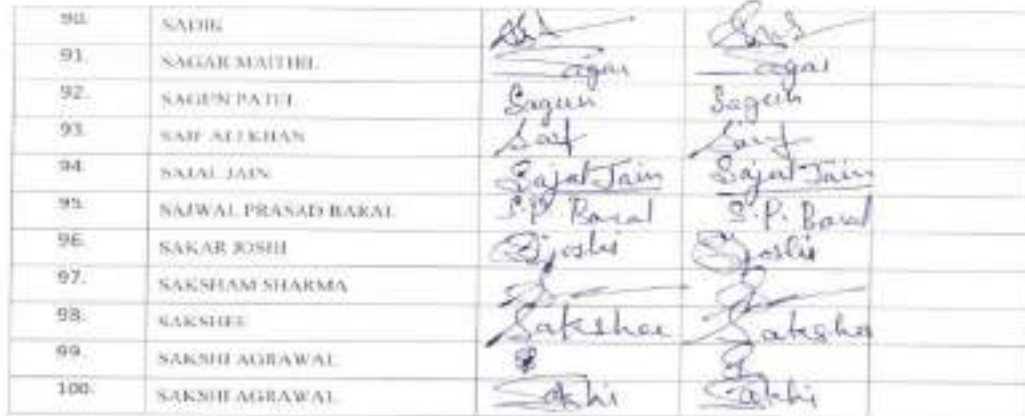 90. SADIK
91. SAGAR MAITHIL Sagar Sagar
92. SAGUN PATEL Sagun Sagun
93. SAIF ALI KHAN Saif Saif
94. SAJAL JAIN Sajal Jain Sajal Jain
95. SAJWAL PRASAD BARAL S.P. Baral S.P. Baral
96. SAKAR JOSHI SJoshi SJoshi
97. SAKSHAM SHARMA
98. SAKSHEE Sakshee Sakshee
99. SAKSHI AGRAWAL
100. SAKSHI AGRAWAL Sakshi Sakshi